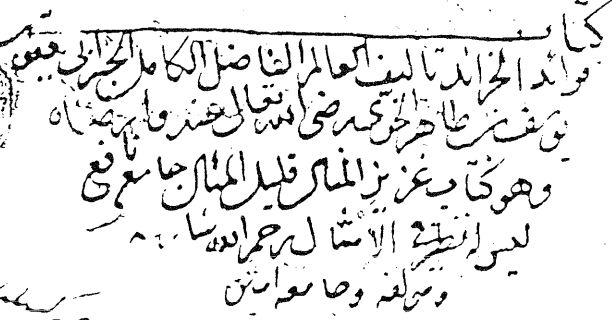 كتاب
فرائد الخرائد تاليف العالم الفاضل الكامل ابي يعقوب
يوسف بن طاهر الخويي رضى الله تعالى عنه وارضاه
وهو كتاب عزيز المنال قليل المثال جامع نافع
ليس له نظير في الأمثال رحم الله
ومولفه وجامعه امين